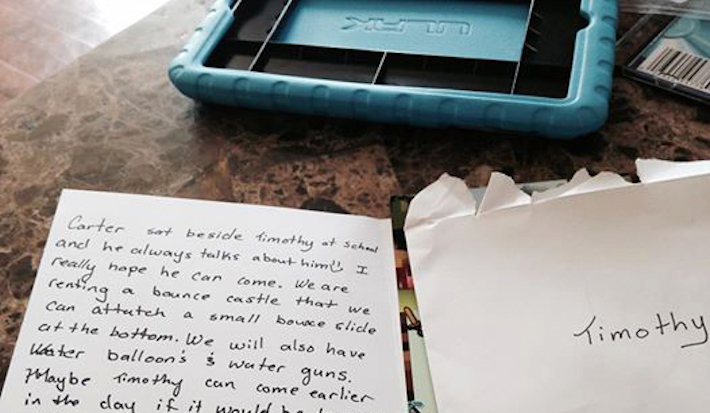 Carter sat beside Timothy at School
and he always talks about him!! I
really hope he can come. We are
renting a bounce castle that we
can attatch a small bounce slide
at the bottom. We will also have
Water balloon's & water guns.
Maybe Timothy can come earlier
in the day if it would be
Timothy